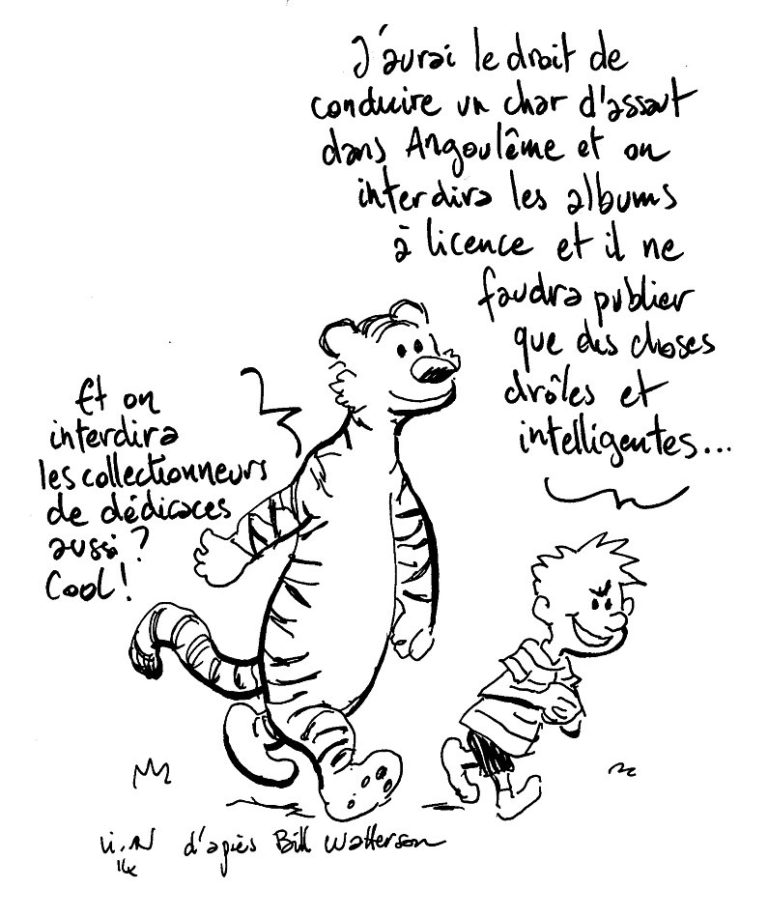 J'aurai le droit de
conduire un char d'assaut
dans Angoulême et on
interdira les albums
à licence et il ne
faudra publier
que des choses
drôles et
intelligentes...
Et on
interdira
les collectionneurs
de dédicaces
aussi ?
Cool !
d'après Bill Watterson